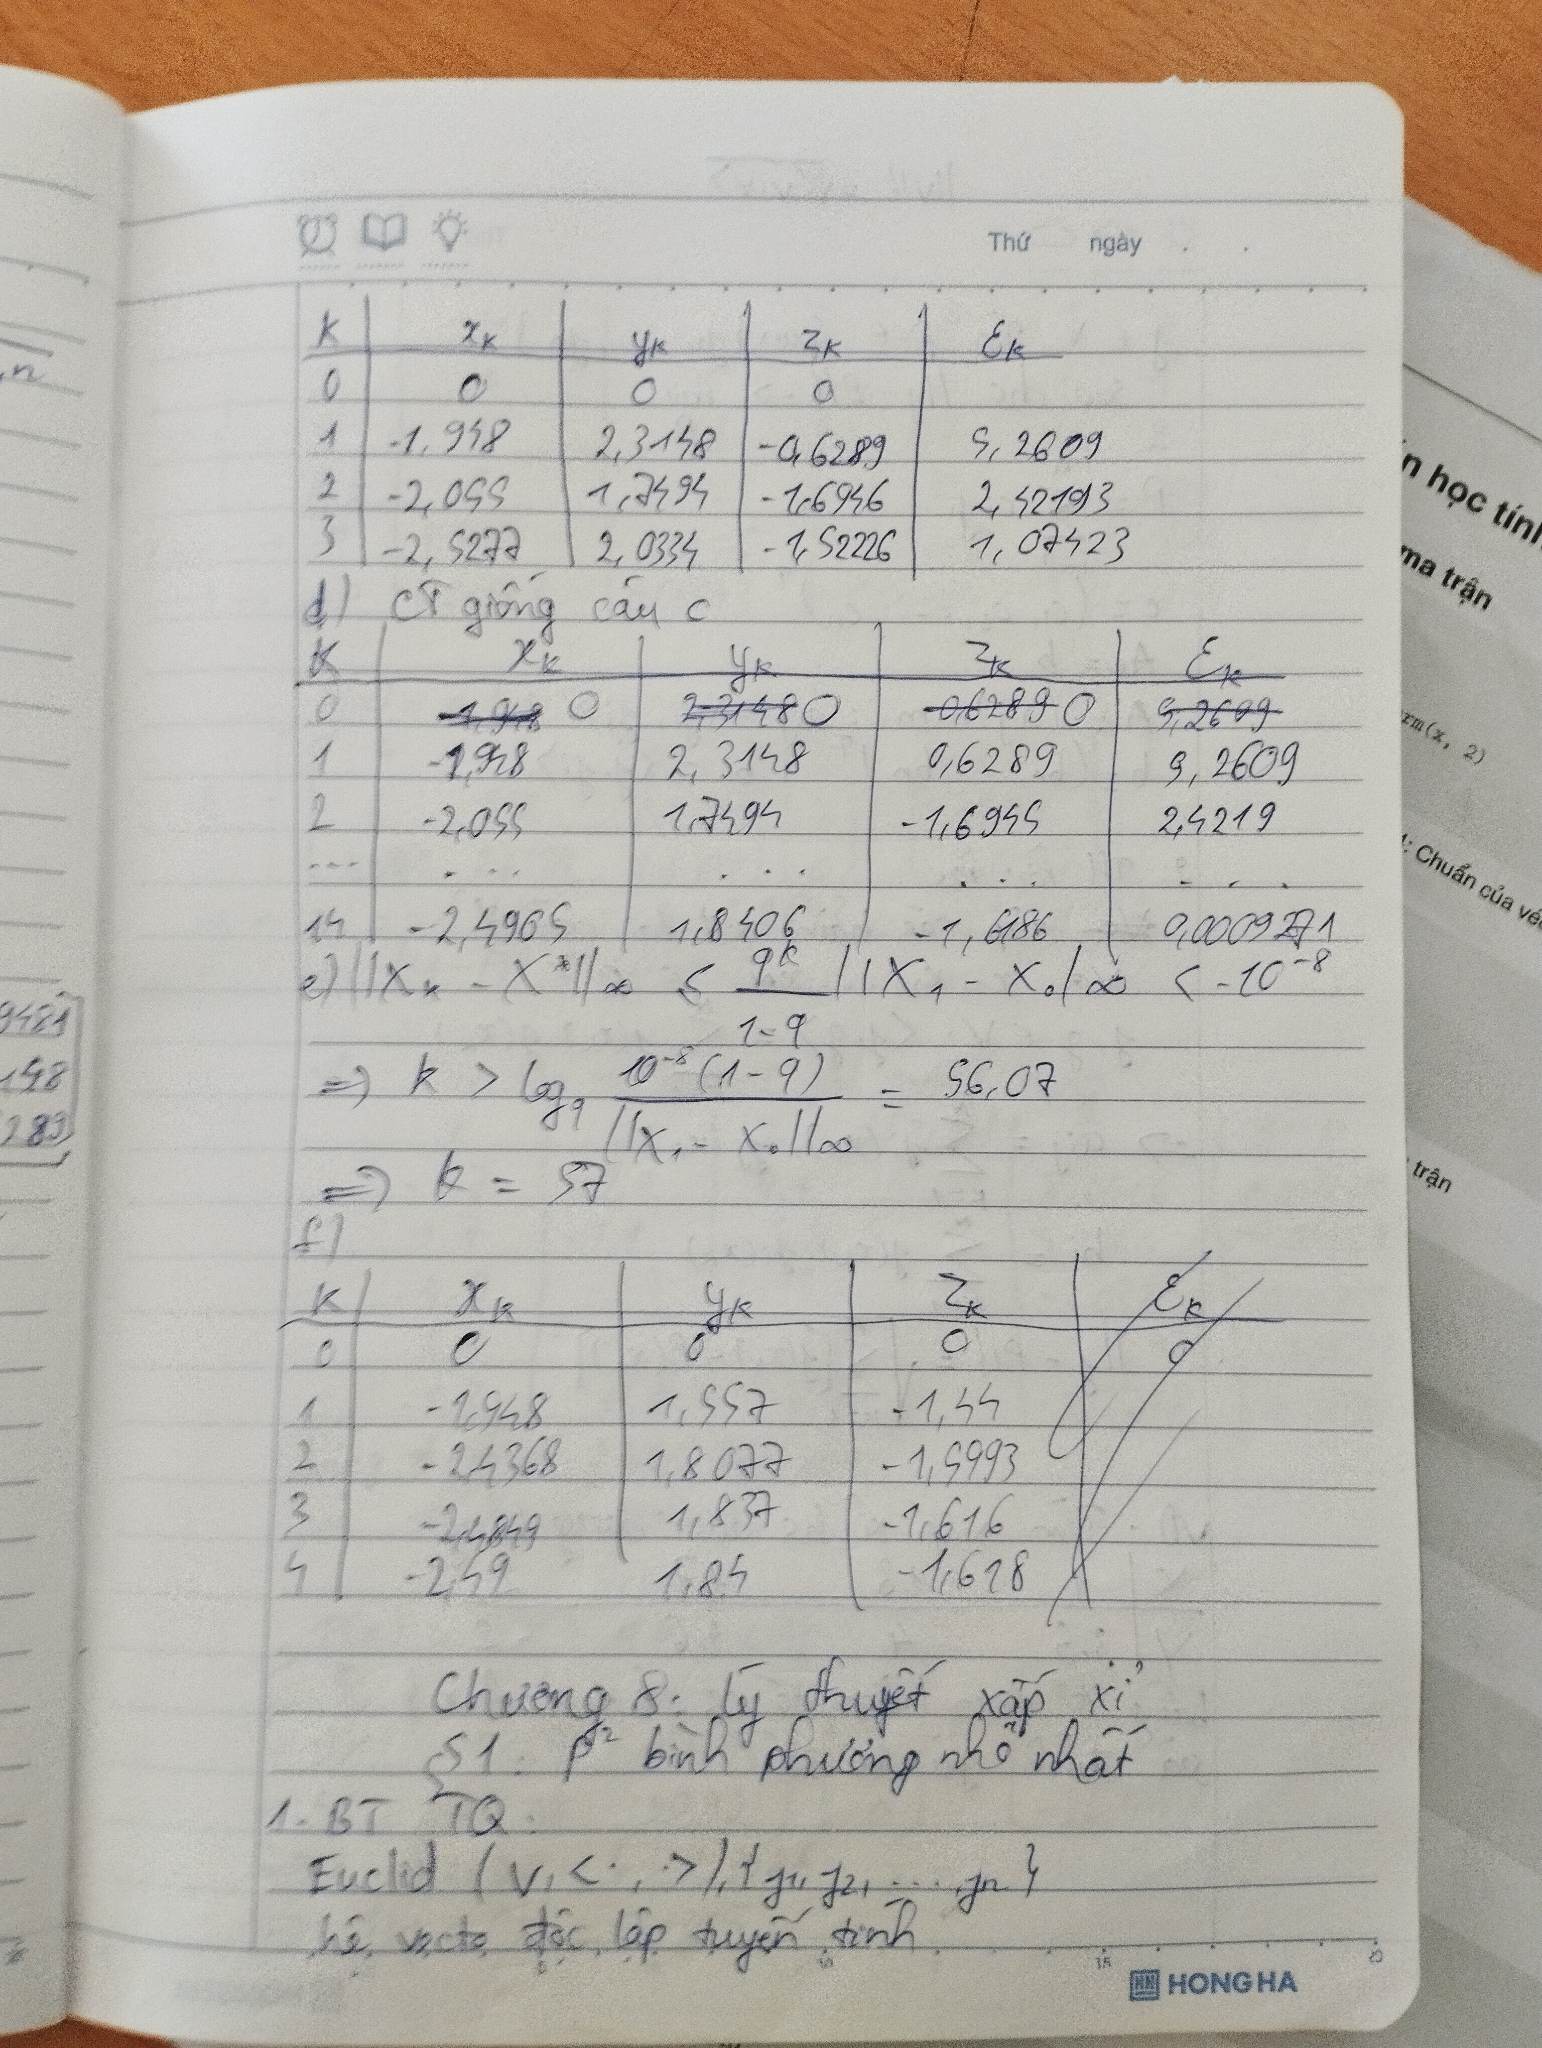 Thứ ngày . .
K x_K y_K z_K ε_K
0 0 0 0
1 -1,948 2,3148 -0,6289 5,2609
2 -2,055 1,7494 -1,6946 2,42193
3 -2,5277 2,0334 -1,52226 1,07423
d) CT giống câu c
K x_K y_K z_K ε_K
0 -1,948 0 2,3148 0 -0,6289 0 5,2609
1 -1,948 2,3148 0,6289 5,2609
2 -2,055 1,7494 -1,6945 2,4219
... ... ... ... ...
14 -2,4905 1,8406 -1,6186 0,0009271
e) ||X_k - X*||∞ ≤ q^k / (1-q) ||X_1 - X_0||∞ < 10^-8
=> k > log_q 10^-8 (1-q) / ||X_1 - X_0||∞ = 56,07
=> k = 57
f)
K x_K y_K z_K ε_K
0 0 0 0 0
1 -1,948 1,557 -1,44
2 -2,4368 1,8077 -1,5993
3 -2,4849 1,837 -1,616
4 -2,49 1,84 -1,618
Chương 8: Lý thuyết xấp xỉ
§1. P² bình phương nhỏ nhất
1. BT TQ:
Euclid (V, <·,·>), {y1, y2, ..., yn}
hệ vecto độc lập tuyến tính
15
HONG HA
,n
9481
148
283
ma trận
rm(x, 2)
1: Chuẩn của
trận